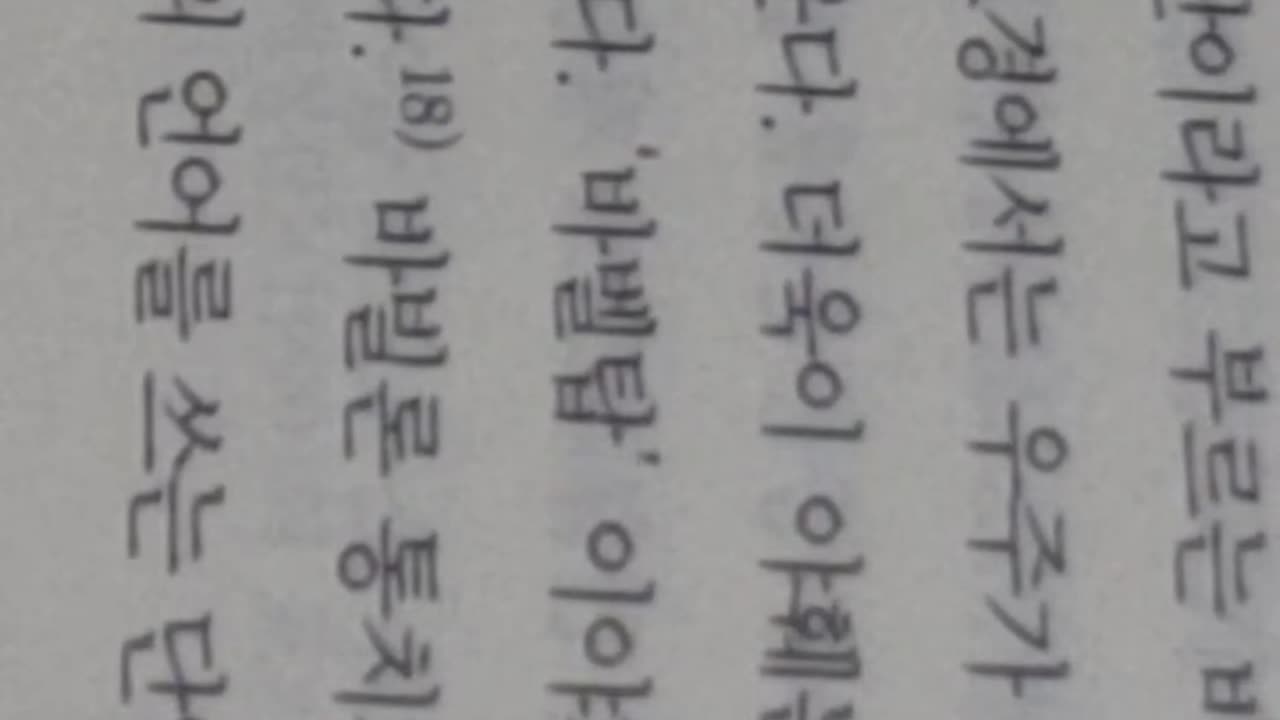 안이라고 부르는 바
경에서는 우주가
다. 더욱이 야훼는
다. '바벨탑' 이야
다. 18) 바빌론 통치
언어를 쓰는 단